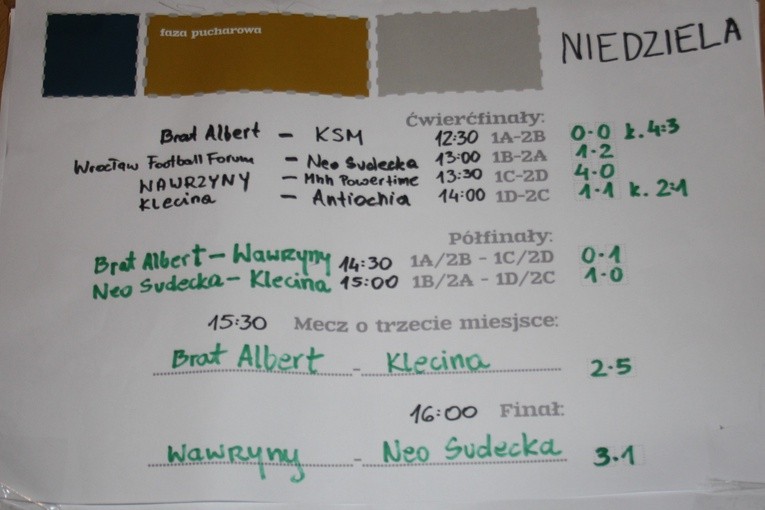 faza pucharowa
NIEDZIELA
Ćwierćfinały:
Brat Albert - KSM 12:30 1A-2B 0-0 k. 4:3
Wrocław Football Forum - Neo Sudecka 13:00 1B-2A 1-2
WAWRZYNY - Mhh Powertime 13:30 1C-2D 4-0
Klecina - Antiochia 14:00 1D-2C 1-1 k. 2:1
Półfinały:
Brat Albert - Wawrzyny 14:30 1A/2B - 1C/2D 0-1
Neo Sudecka - Klecina 15:00 1B/2A - 1D/2C 1-0
15:30 Mecz o trzecie miesjsce:
Brat Albert - Klecina 2-5
16:00 Finał:
Wawryny - Neo Sudecka 3-1